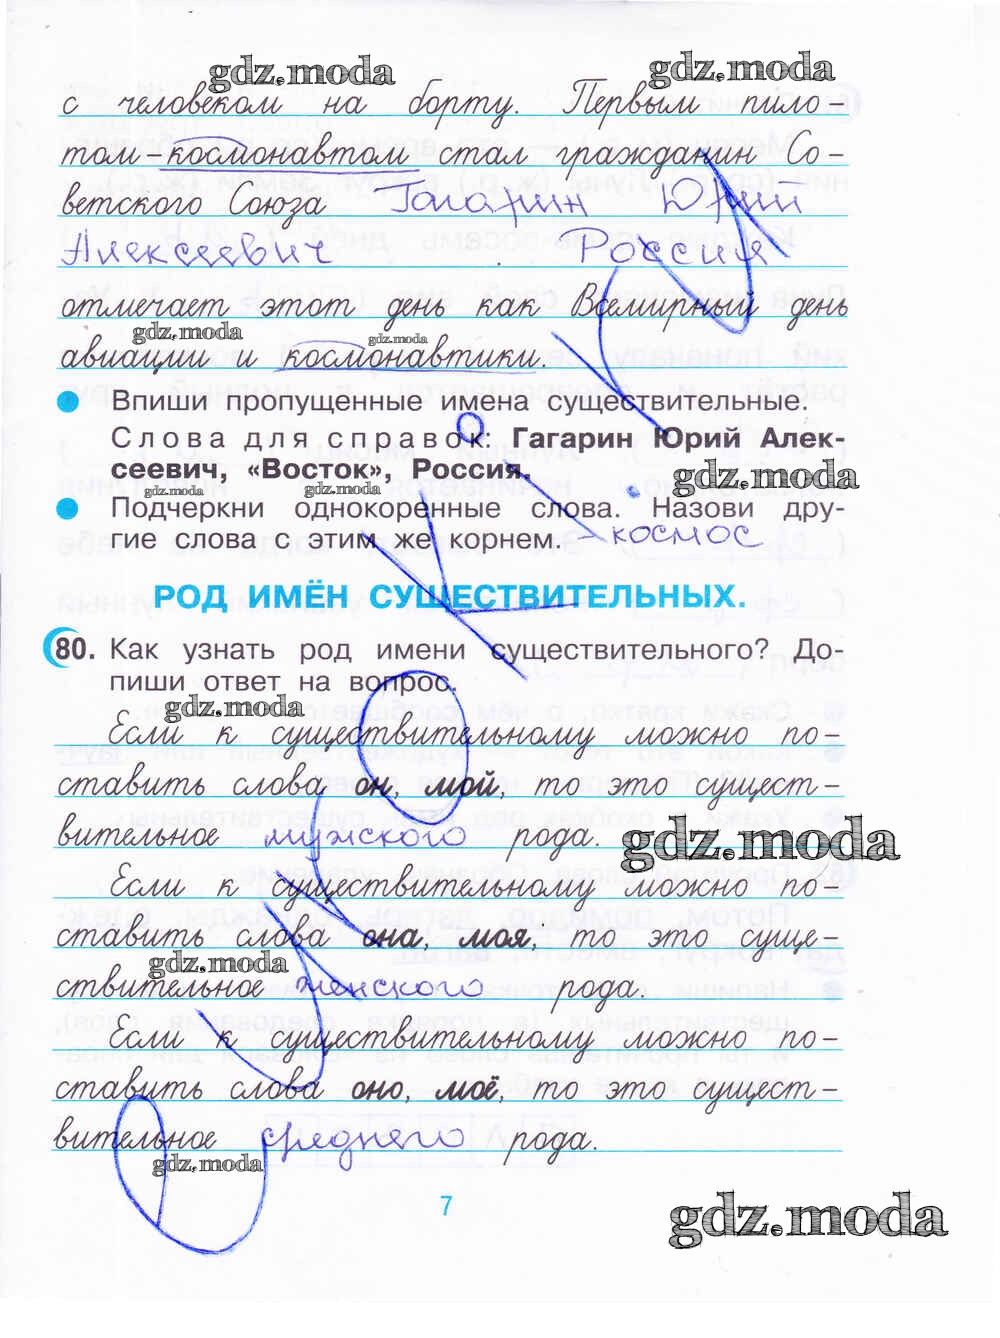 gdz.moda gdz.moda
с человеком на борту. Первым пило-
том-космонавтом стал гражданин Со-
ветского Союза Гагарин Юрий
Алексеевич . Россия
отмечает этот день как Всемирный день
gdz.moda gdz.moda
авиации и космонавтики.
Впиши пропущенные имена существительные.
Слова для справок: Гагарин Юрий Алек-
сеевич, «Восток», Россия.
gdz.moda
gdz.moda gdz.moda
Подчеркни однокоренные слова. Назови дру-
гие слова с этим же корнем. - космос
РОД ИМЁН СУЩЕСТВИТЕЛЬНЫХ.
80. Как узнать род имени существительного? До-
пиши ответ на вопрос.
gdz.moda
Если к существительному можно по-
ставить слова он, мой, то это сущест-
вительное мужского рода.
gdz.moda
Если к существительному можно по-
ставить слова она, моя, то это суще-
gdz.moda
ствительное женского рода.
Если к существительному можно по-
ставить слова оно, моё, то это сущест-
вительное среднего рода.
gdz.moda
7
gdz.moda